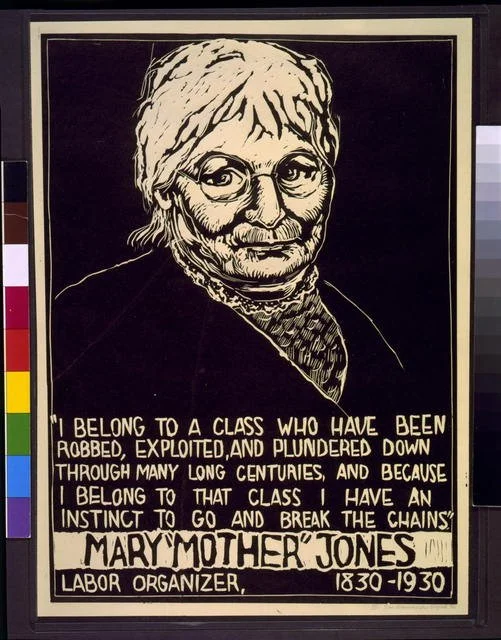 "I BELONG TO A CLASS WHO HAVE BEEN
ROBBED, EXPLOITED, AND PLUNDERED DOWN
THROUGH MANY LONG CENTURIES, AND BECAUSE
I BELONG TO THAT CLASS I HAVE AN
INSTINCT TO GO AND BREAK THE CHAINS"
MARY "MOTHER" JONES
LABOR ORGANIZER, 1830-1930